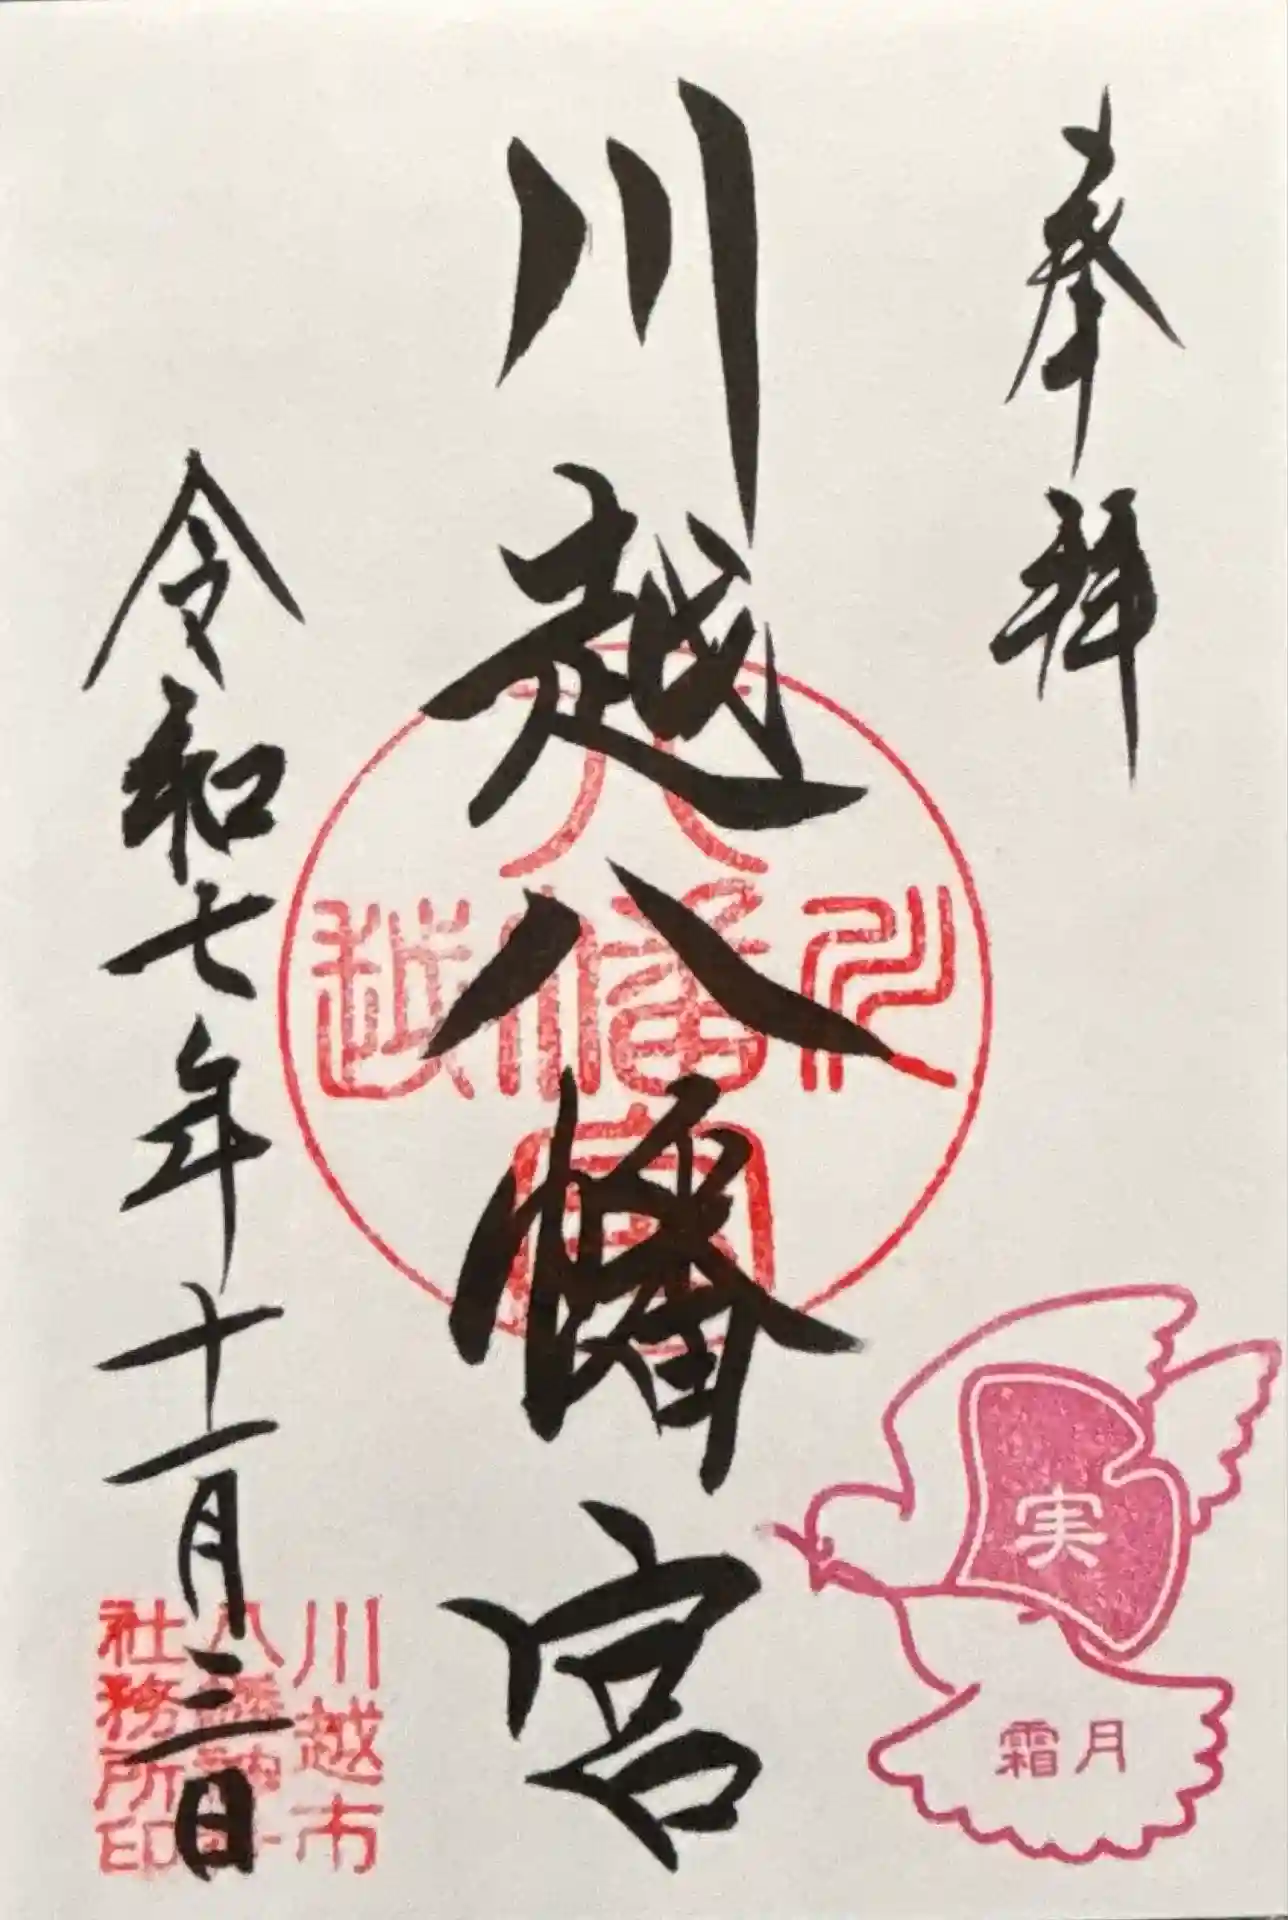 奉拝
川越八幡宮
令和七年十一月三日
八
川幡越
宮
実
霜月
川越市
八幡神社
社務所印